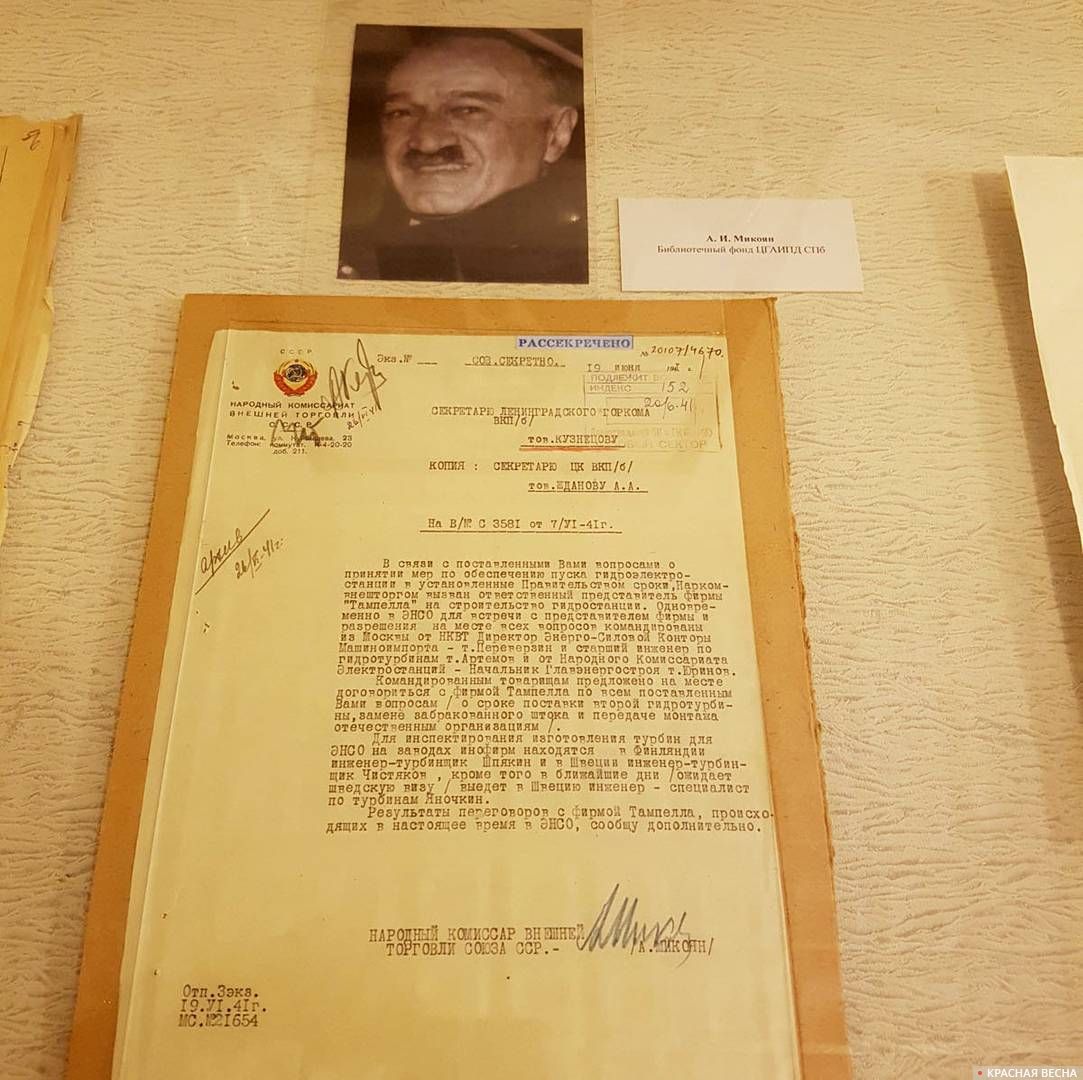 А. И. Микоян
Библиотечный фонд ЦГАИПД СПб
РАССЕКРЕЧЕНО
СССР
Экз.№ ___ СОВ.СЕКРЕТНО.
№ 20107/4670.
19 июня 194 г.
ПОДЛЕЖИТ
ИНДЕКС 152
20/6-41
СЕКТОР
НАРОДНЫЙ КОМИССАРИАТ
ВНЕШНЕЙ ТОРГОВЛИ
СССР
Москва, ул. 23
Телефон: коммут. 4-20-20
доб. 211.
26/VI-41
СЕКРЕТАРЮ ЛЕНИНГРАДСКОГО ГОРКОМА
ВКП/б/
тов.КУЗНЕЦОВУ
КОПИЯ : СЕКРЕТАРЮ ЦК ВКП/б/
тов.ЖДАНОВУ А.А.
На В/№ С 3581 от 7/VI-41г.
архив
26/VI-41г.
В связи с поставленными Вами вопросами о
принятии мер по обеспечению пуска гидроэлектро-
станции в установленные Правительством сроки,Нарком-
внешторгом вызван ответственный представитель фирмы
"Тампелла" на строительство гидростанции. Одновре-
менно в ЭНСО для встречи с представителем фирмы и
разрешения на месте всех вопросов командированы
из Москвы от НКВТ Директор Энерго-Силовой Конторы
Машиноимпорта - т.Переверзин и старший инженер по
гидротурбинам т.Артемов и от Народного Комиссариата
Электростанций - Начальник Главэнергостроя т.Юринов.
Командированным товарищам предложено на месте
договориться с фирмой Тампелла по всем поставленным
Вами вопросам / о сроке поставки второй гидротурби-
ны,замене забракованного штока и передаче монтажа
отечественным организациям /.
Для инспектирования изготовления турбин для
ЭНСО на заводах инофирм находятся в Финляндии
инженер-турбинщик Шпякин и в Швеции инженер-турбин-
щик Чистяков , кроме того в ближайшие дни /ожидает
шведскую визу / выедет в Швецию инженер - специалист
по турбинам Яночкин.
Результаты переговоров с фирмой Тампелла, происхо-
дящих в настоящее время в ЭНСО, сообщу дополнительно.
НАРОДНЫЙ КОМИССАР ВНЕШНЕЙ
ТОРГОВЛИ СОЮЗА ССР.- /А.МИКОЯН/
Отп.3экз.
19.VI.41г.
МС.№21654
КРАСНАЯ ВЕСНА